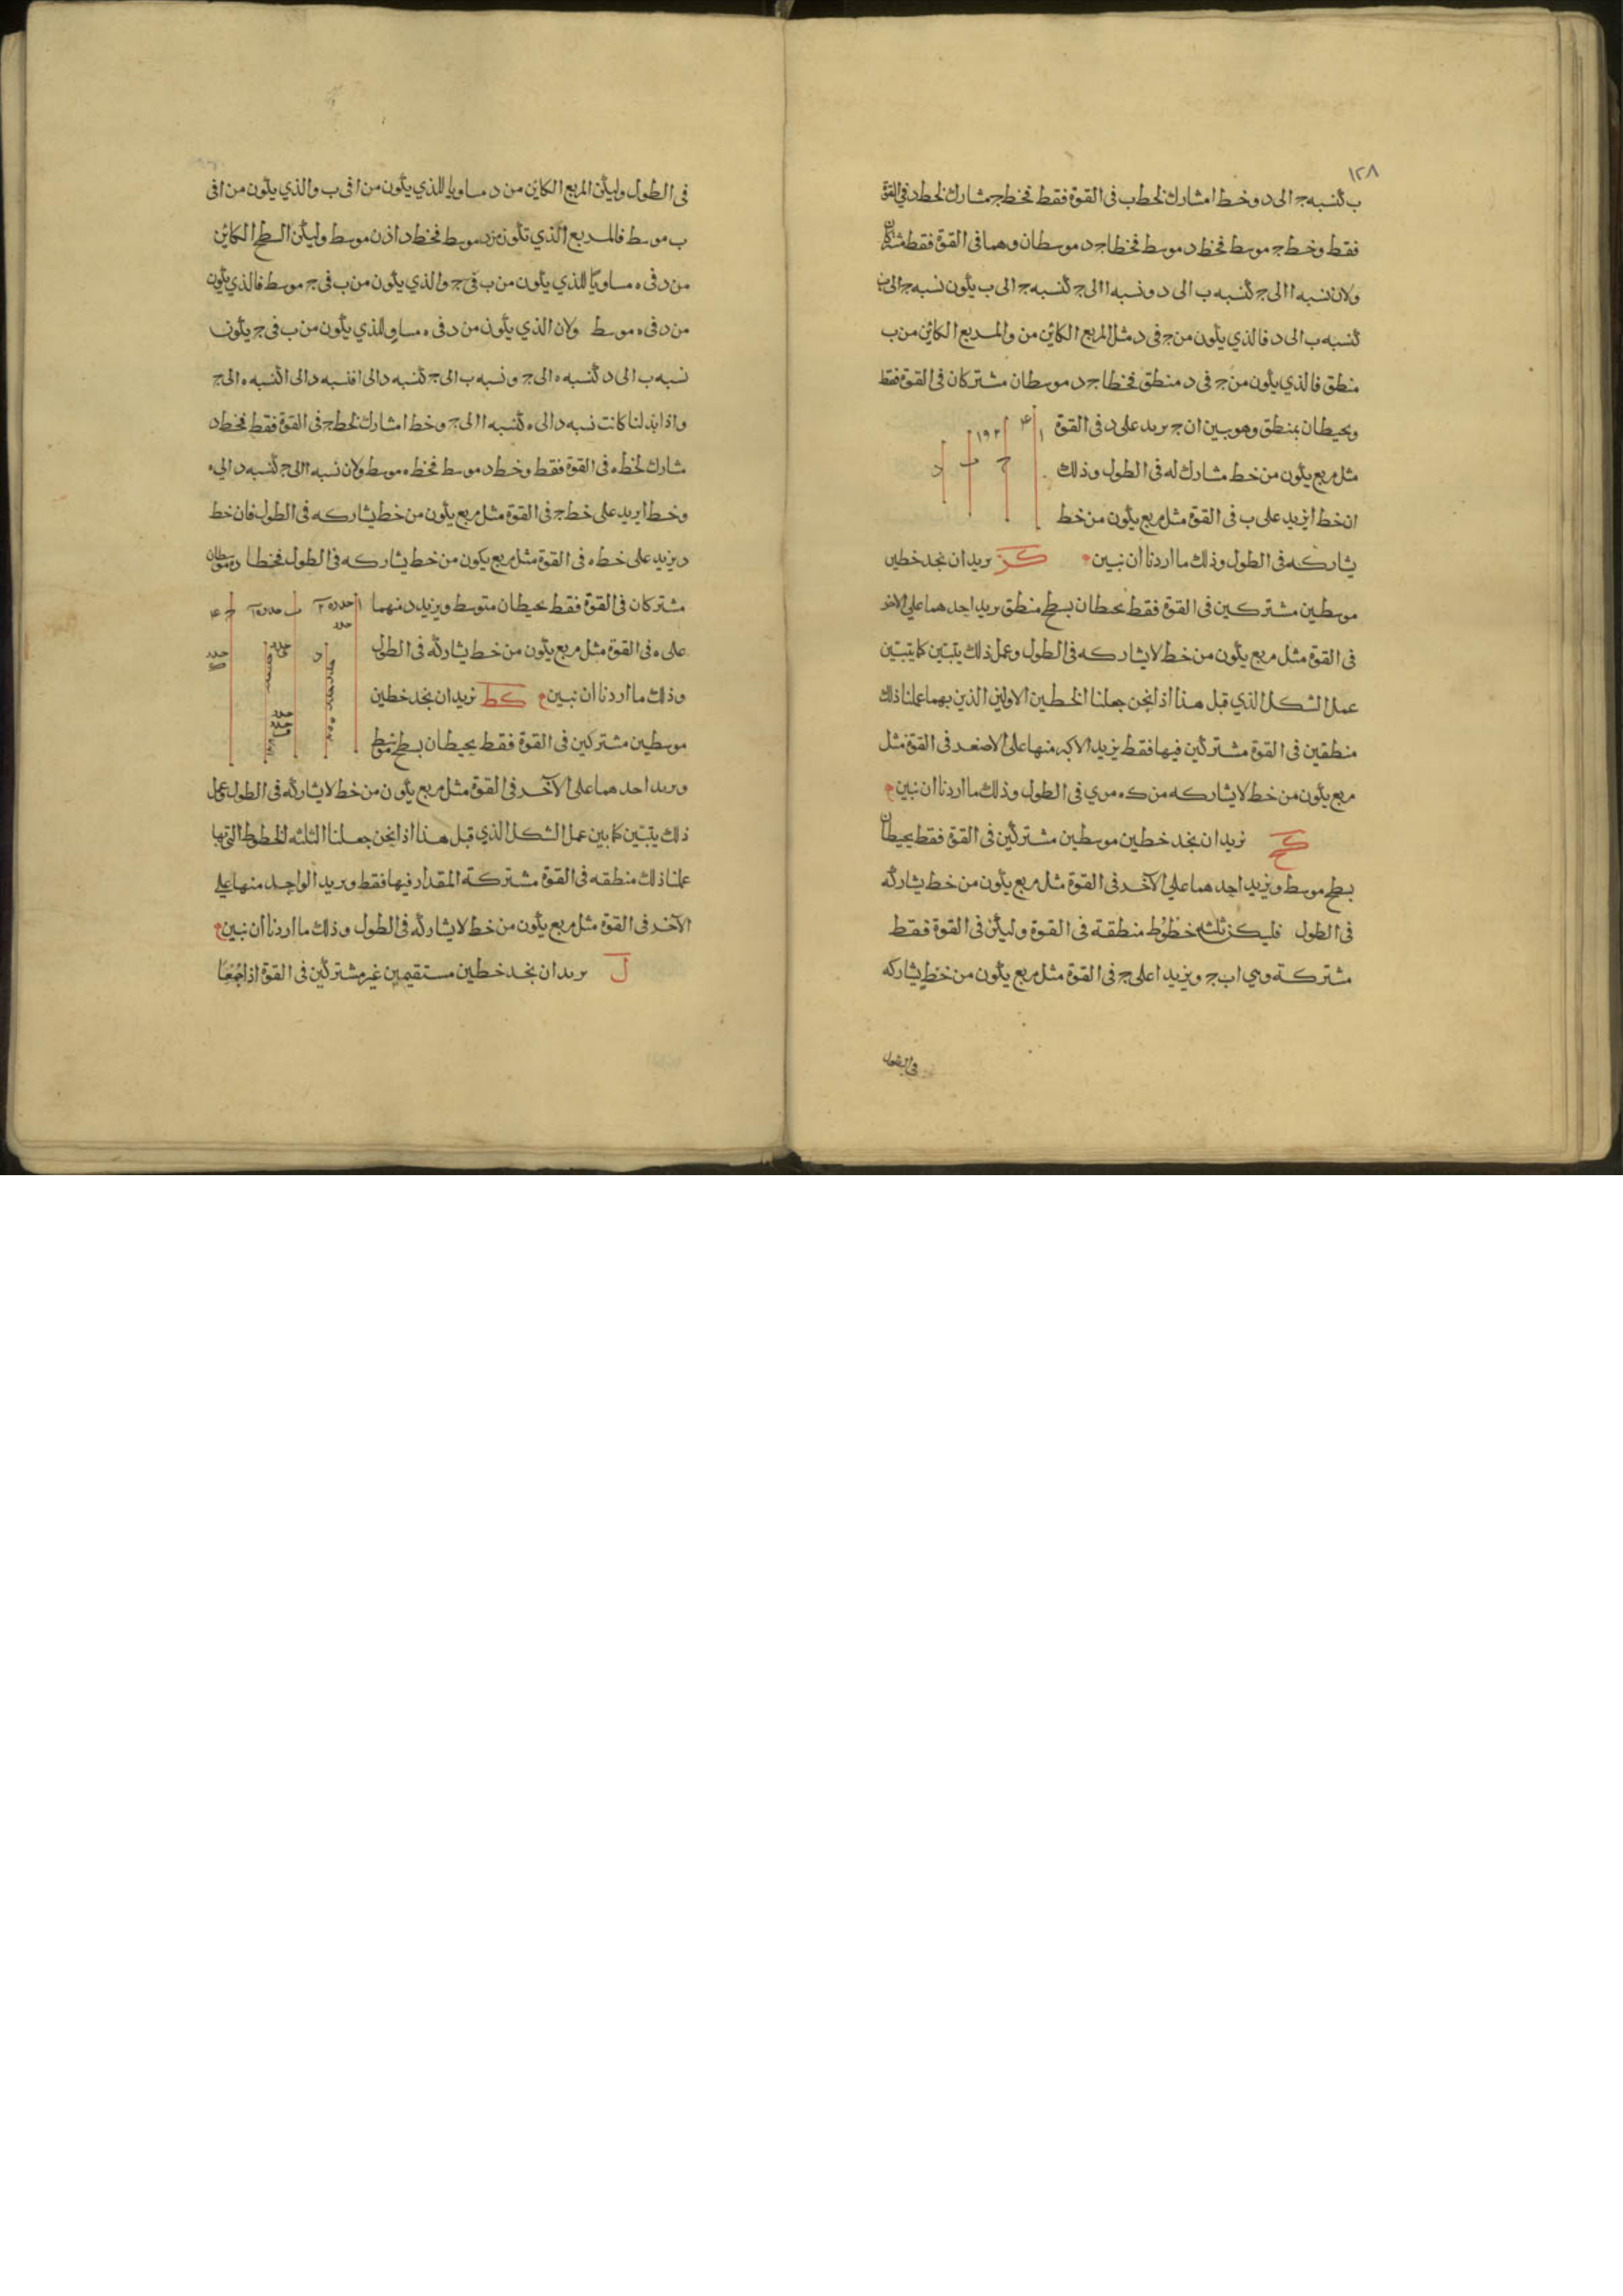 ١٢٨
ب كنسبه ج الى د وخط ا مشارك لخط ب فى القوة فقط فخط ج مشارك لخط د فى القوة
فقط وخط ج موسط فخط د موسط فخطا ج د موسطان وهما فى القوة فقط مشتركان
ولان نسبه ا الى ج كنسبه ب الى د ونسبه ا الى ج كنسبه ج الى ب يكون نسبه ج الى ب
كنسبه ب الى د فالذي يكون من ج فى د مثل المربع الكائن من والمربع الكائن من ب
منطق فالذي يكون من ج فى د منطق فخطا ج د موسطان مشتركان فى القوة فقط
ويحيطان بمنطق وهو بين ان ج يريد على د فى القوة
مثل مربع يكون من خط مشارك له فى الطول وذلك
ان خط ا يزيد على ب فى القوة مثل مربع يكون من خط
ا ٤ ١٩٢
ج ب د
يشاركه فى الطول وذلك ما اردنا ان نبين كز نريد ان نجد خطين
موسطين مشتركين فى القوة فقط يحيطان بسطح منطق يريد احدهما على الاخر
فى القوة مثل مربع يكون من خط لا يشاركه فى الطول وعمل ذلك يتبين كما يتبين
عمل الشكل الذي قبل هذا اذا نحن جعلنا الخطين الاولين الذين بهما عملنا ذلك
منطقين فى القوة مشتركين فيها فقط يزيد الاكبر منها على الاصغر فى القوة مثل
مربع يكون من خط لا يشاركه من فى الطول وذلك ما اردنا ان نبين
كح نريد ان نجد خطين موسطين مشتركين فى القوة فقط يحيطان
بسطح موسط ويزيد احدهما على الآخر فى القوة مثل مربع يكون من خط يشاركه
فى الطول فليكن ثلثه خطوط منطقة فى القوة وليكن فى القوة فقط
مشتركة وهي ا ب ج ويزيد ا على ج فى القوة مثل مربع يكون من خط يشاركه
فى الطول
فى الطول وليكن المربع الكاين من د مساويا للذي يكون من ا فى ب والذي يكون من ا فى
ب موسط فالمربع الذي تكون من د موسط فخط د اذن موسط وليكن السطح الكاين
من د فى ه مساويا للذي يكون من ب فى ج والذي يكون من ب فى ج موسط فالذي يكون
من د فى ه موسط ولان الذي يكون من د فى ه مساو للذي يكون من ب فى ج يكون
نسبه ب الى د كنسبه ه الى ج ونسبه ب الى ج كنسبه د الى ا فنسبه د الى ا كنسبه ه الى ج
واذا بدلنا كانت نسبه د الى ه كنسبه ا الى ج وخط ا مشارك لخط ج فى القوة فقط فخط د
مشارك لخط ه فى القوة فقط وخط د موسط فخط ه موسط ولان نسبه ا الى ج كنسبه د الى ه
وخط ا يريد على خط ج فى القوة مثل مربع يكون من خط يشاركه فى الطول فان خط
د يزيد على خط ه فى القوة مثل مربع يكون من خط يشاركه فى الطول فخطا د ه موسطان
مشتركان فى القوة فقط يحيطان متوسط ويزيد د منهما
على ه فى القوة مثل مربع يكون من خط يشاركه فى الطول
وذلك ما اردنا ان نبين كط نريد ان نجد خطين
موسطين مشتركين فى القوة فقط يحيطان بسطح موسط
ويريد احدهما على الآخر فى القوة مثل مربع يكون من خط لا يشاركه فى الطول وعمل
ذلك يتبين كما بين عمل الشكل الذي قبل هذا اذا نحن جعلنا الثلثه الخطوط التي بها
عملنا ذلك منطقه فى القوة مشتركة المقدار فيها فقط ويريد الواحد منها على
الآخر فى القوة مثل مربع يكون من خط لا يشاركه فى الطول وذلك ما اردنا ان نبين
ل نريد ان نجد خطين مستقيمين غير مشتركين فى القوة اذا جمعا